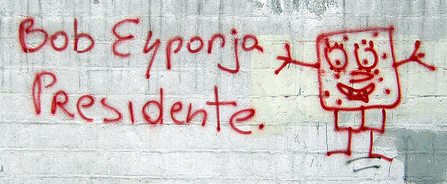 Bob Eyponja
Presidente.